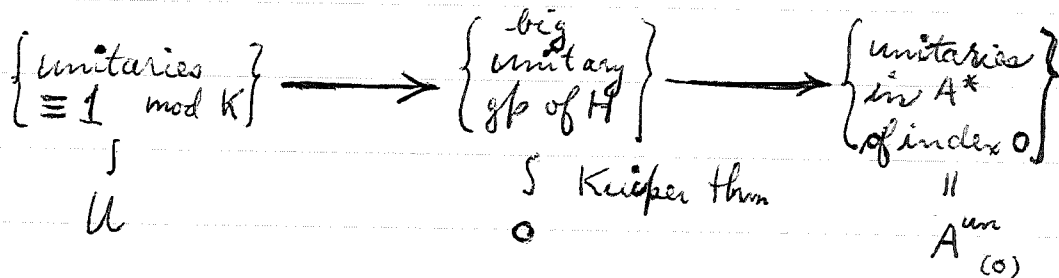 {unitaries ≡ 1 mod K} ⟶ {big unitary gp of H} ⟶ {unitaries in A* of index 0}
∫ ∫ Kuiper thm ||
U 0 A^{un}_{(0)}